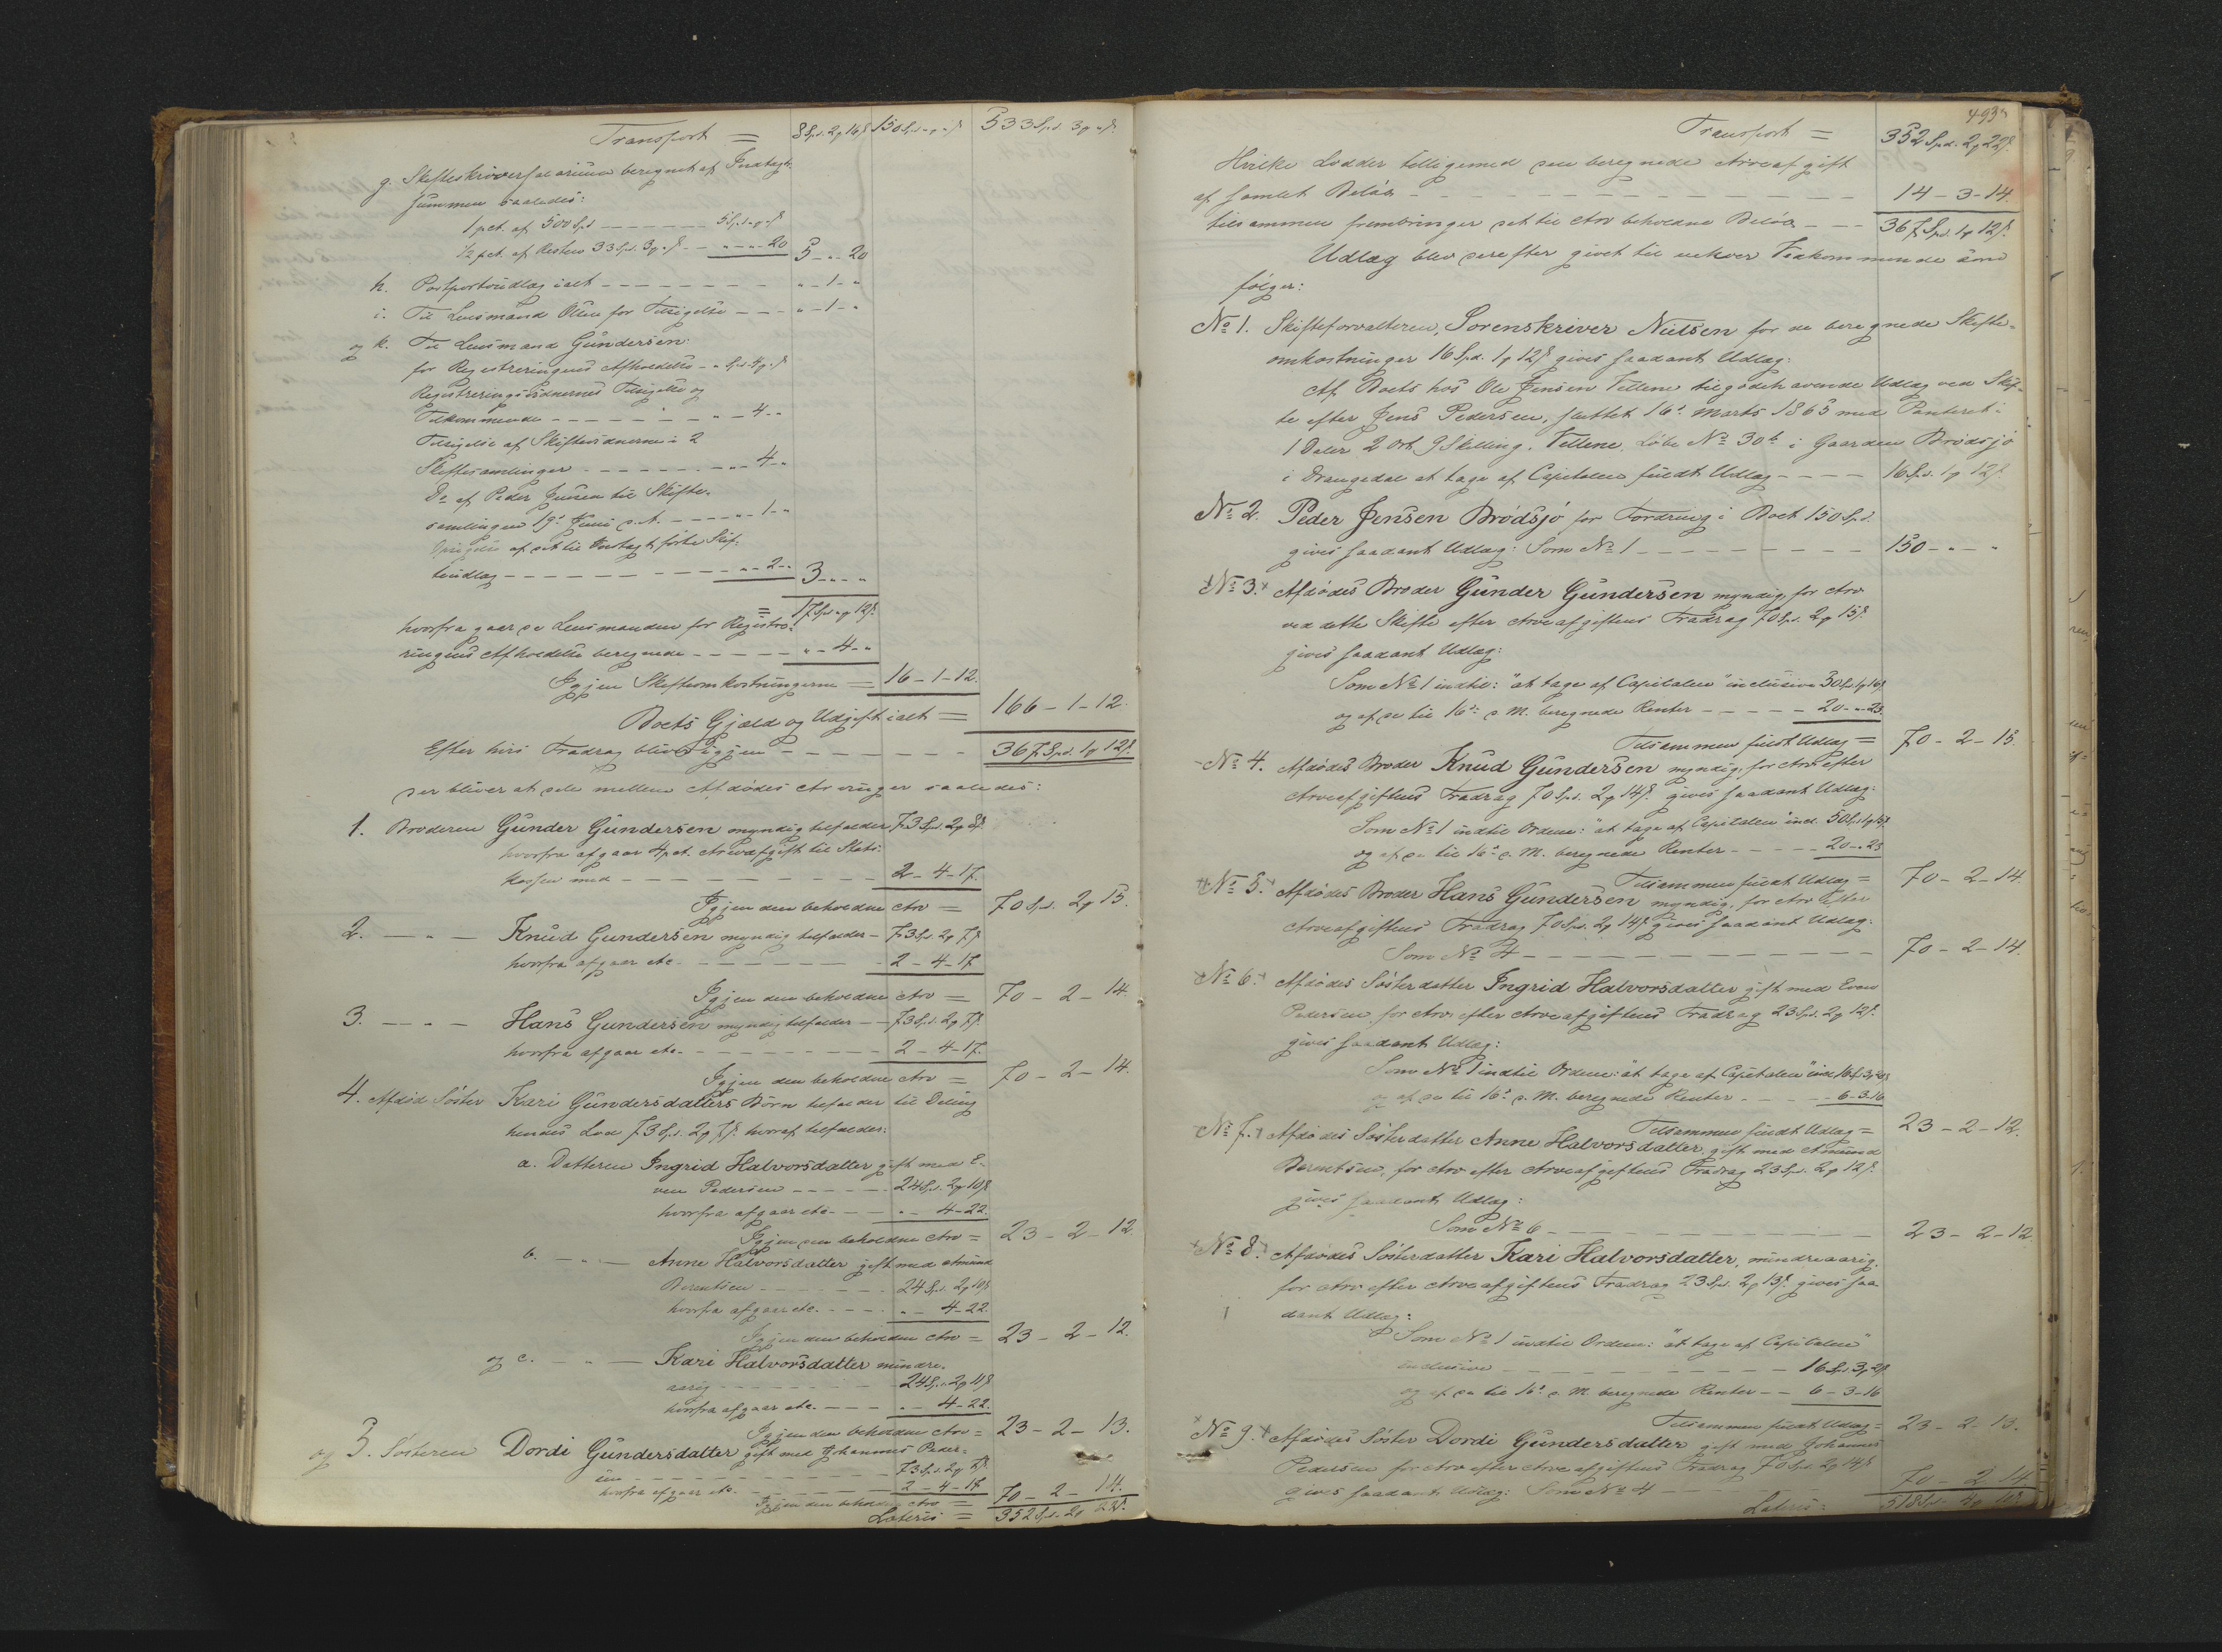 Transport = 8 Spd. 2 ƒ 16 ß 150 Spd. „ ƒ „ ß 533 Spd. 3 ƒ „ ß.
g. Skifteskriversalarium beregnet af Indtægts-
summen saaledes:
1 pct. af 500 Spd. — 5 Spd. „ ƒ „ ß
1/2 pct. af Resten 33 Spd. 3 ƒ „ ß — „ - „ - 20 5 - „ - 20
h. Postportoudlæg ialt — „ - 1 - „
i. Til Lensmand Olsen for Tilsigelse — „ - 1 - „
og k. Til Lensmand Gundersen:
for Registreringens Afholdelse — „ Spd. 4 ƒ „ ß
Registreringsvidnernes Tilsigelse og
Tilkommende — „ - 4 - „
Tilsigelse af Skiftevidnerne i 2
Skiftesamlinger — „ - 4 - „
Do af Peder Jensen til Skifte-
samlingen 19de Juni d. A. — „ - 1 - „
af det til Indtægt førte Skif-
teudlæg — „ - 2 - „ 3 - „ - „
= 17 Spd. „ ƒ 12 ß.
hvorfra gaar de Lensmanden for Registre-
ringens Afholdelse beregnede — „ - 4 - „
Igjen Skifteomkostningerne = 16 - 1 - 12.
Boets Gjæld og Udgift ialt = 166 - 1 - 12.
Efter hvis Fradrag bliver igjen — 367 Spd. 1 ƒ 12 ß.
der bliver at dele mellem Afdødes Arvinger saaledes:
1. Broderen Gunder Gundersen myndig tilfalder 73 Spd. 2 ƒ 8 ß
hvorfra afgaar 4 pct. Arveafgift til Stats-
kassen med — 2 - 4 - 17.
Igjen den beholdne Arv = 70 Spd. 2 ƒ 15.
2. — „ — Knud Gundersen myndig tilfalder — 73 Spd. 2 ƒ 7 ß
hvorfra afgaar etc. — 2 - 4 - 17
Igjen den beholdne Arv = 70 - 2 - 14.
3. — „ — Hans Gundersen myndig tilfalder — 73 Spd. 2 ƒ 7 ß.
hvorfra afgaar etc. — 2 - 4 - 17.
Igjen den beholdne Arv = 70 - 2 - 14.
4. Afdød Søster Kari Gundersdatters Børn tilfalder til Deling
hendes Lod 73 Spd. 2 ƒ 7 ß. hvoraf tilfalder:
a. Datteren Ingrid Halvorsdatter gift med E-
ven Pedersen — 24 Spd. 2 ƒ 10 ß
hvorfra afgaar etc. — „ - 4 - 22.
Igjen den beholdne Arv = 23 - 2 - 12.
b. — „ — Anne Halvorsdatter gift med Amund
Berentsen — 24 Spd. 2 ƒ 10 ß
hvorfra afgaar etc. — „ - 4 - 22.
Igjen den beholdne Arv = 23 - 2 - 12.
og c. — „ — Kari Halvorsdatter mindre-
aarig — 24 Spd. 2 ƒ 11 ß
hvorfra afgaar etc. — „ - 4 - 22.
Igjen den beholdne Arv = 23 - 2 - 13.
og 5. Søsteren Dordi Gundersdatter gift med Johannes Peder-
sen — 73 Spd. 2 ƒ 7 ß.
hvorfra afgaar etc. — 2 - 4 - 17
Igjen den beholdne Arv = 70 - 2 - 14.
Lateris = 352 Spd. 2 ƒ 22 ß.
493
Transport = 352 Spd. 2 ƒ 22 ß.
Hvilke Lodder tilligemed den beregnede Arveafgift
af samlet Beløb — 14 - 3 - 14.
tilsammen frembringer det til Arv beholdne Beløb — 367 Spd. 1 ƒ 12 ß.
Udlæg blev derefter givet til enhver Vedkommende som
følger:
No 1. Skifteforvalteren, Sorenskriver Nielsen for de beregnede Skifte-
omkostninger 16 Spd. 1 ƒ 12 ß gives saadant Udlæg:
Af Boets hos Ole Jensen Vellene tilgodehavende Udlæg ved Skif-
te efter Jens Pedersen, sluttet 16de Marts 1863 med Panteret i
1 Daler 2 Ort 9 Skilling. Vellene, Løbe No 30b i Gaarden Brødsjø
i Drangedal at tage af Capitalen fuldt Udlæg — 16 Spd. 1 ƒ 12 ß.
No 2. Peder Jensen Brødsjø for Fordring i Boet 150 Spd.
gives saadant Udlæg: Som No 1 — 150 - „ - „
No 3. Afdødes Broder Gunder Gundersen myndig, for Arv
ved dette Skifte efter Arveafgiftens Fradrag 70 Spd. 2 ƒ 15 ß.
gives saadant Udlæg:
Som No 1 indtil: "at tage af Capitalen" inclusive 50 Spd. 1 ƒ 16 ß
og af de til 16de d. M. beregnede Renter — 20 - „ - 23.
Tilsammen fuldt Udlæg = 70 - 2 - 15.
No 4. Afdødes Broder Knud Gundersen myndig, for Arv efter
Arveafgiftens Fradrag 70 Spd. 2 ƒ 14 ß. gives saadant Udlæg:
Som No 1 indtil Ordene: "at tage af Capitalen" incl. 50 Spd. 1 ƒ 15 ß.
og af de til 16de d. M. beregnede Renter — 20 - „ - 23
Tilsammen fuldt Udlæg = 70 - 2 - 14.
No 5. Afdødes Broder Hans Gundersen myndig, for Arv efter
Arveafgiftens Fradrag 70 Spd. 2 ƒ 14 ß gives saadant Udlæg:
Som No 4 — 70 - 2 - 14.
No 6. Afdødes Søsterdatter Ingrid Halvorsdatter gift med Even
Pedersen, for Arv efter Arveafgiftens Fradrag 23 Spd. 2 ƒ 12 ß.
gives saadant Udlæg:
Som No 1 indtil Ordene: "at tage af Capitalen" incl. 16 Spd. 3 ƒ 20 ß
og af de til 16de d. M. beregnede Renter — 6 - 3 - 16
Tilsammen fuldt Udlæg = 23 - 2 - 12.
No 7. Afdødes Søsterdatter Anne Halvorsdatter, gift med Amund
Berentsen, for Arv efter Arveafgiftens Fradrag 23 Spd. 2 ƒ 12 ß.
gives saadant Udlæg:
Som No 6 — 23 - 2 - 12.
No 8. Afdødes Søsterdatter Kari Halvorsdatter, mindreaarig,
for Arv efter Arveafgiftens Fradrag 23 Spd. 2 ƒ 13 ß. gives saa-
dant Udlæg:
Som No 1 indtil Ordene: "at tage af Capitalen"
inclusive — 16 Spd. 3 ƒ 21 ß
og af de til 16de d. M. beregnede Renter — 6 - 3 - 16
Tilsammen fuldt Udlæg = 23 - 2 - 13.
No 9. Afdødes Søster Dordi Gundersdatter gift med Johannes
Pedersen for Arv efter Arveafgiftens Fradrag 70 Spd. 2 ƒ 14 ß
gives saadant Udlæg: Som No 4 — 70 - 2 - 14
Lateris: 518 Spd. 4 ƒ 10 ß.